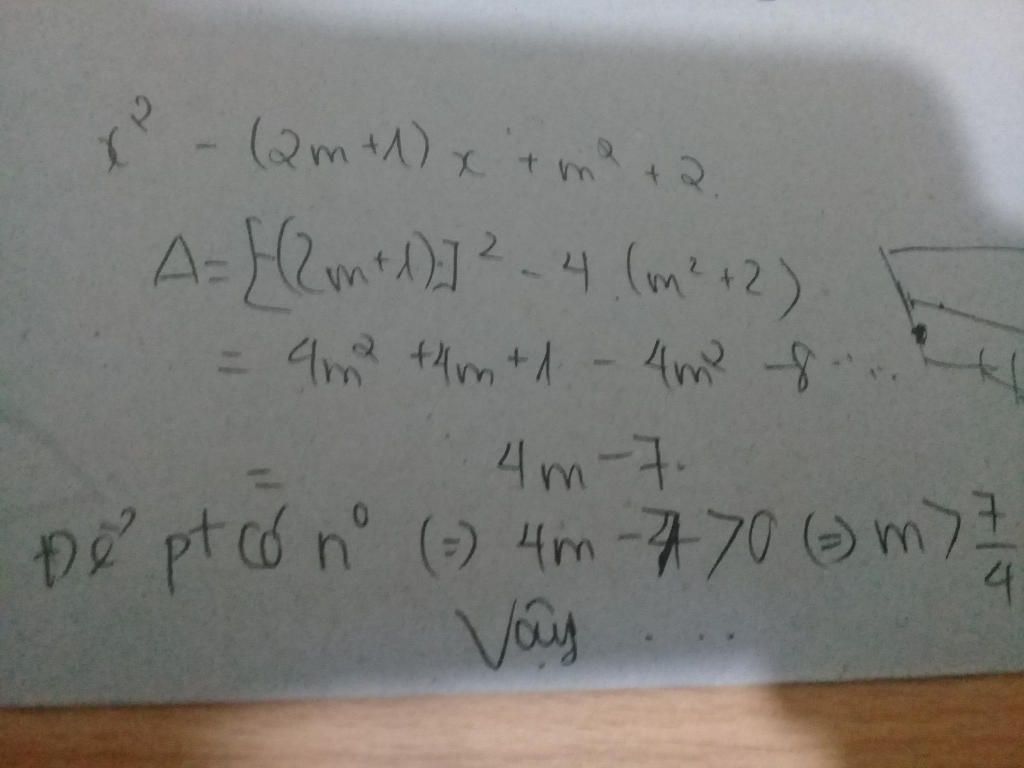 x² - (2m+1) x + m² + 2.
Δ = [-(2m+1)]² - 4.(m²+2)
= 4m² + 4m + 1 - 4m² - 8 ...
= 4m - 7.
Để pt có n⁰ (=) 4m - 7 > 0 (=) m > 7/4
Vậy ....